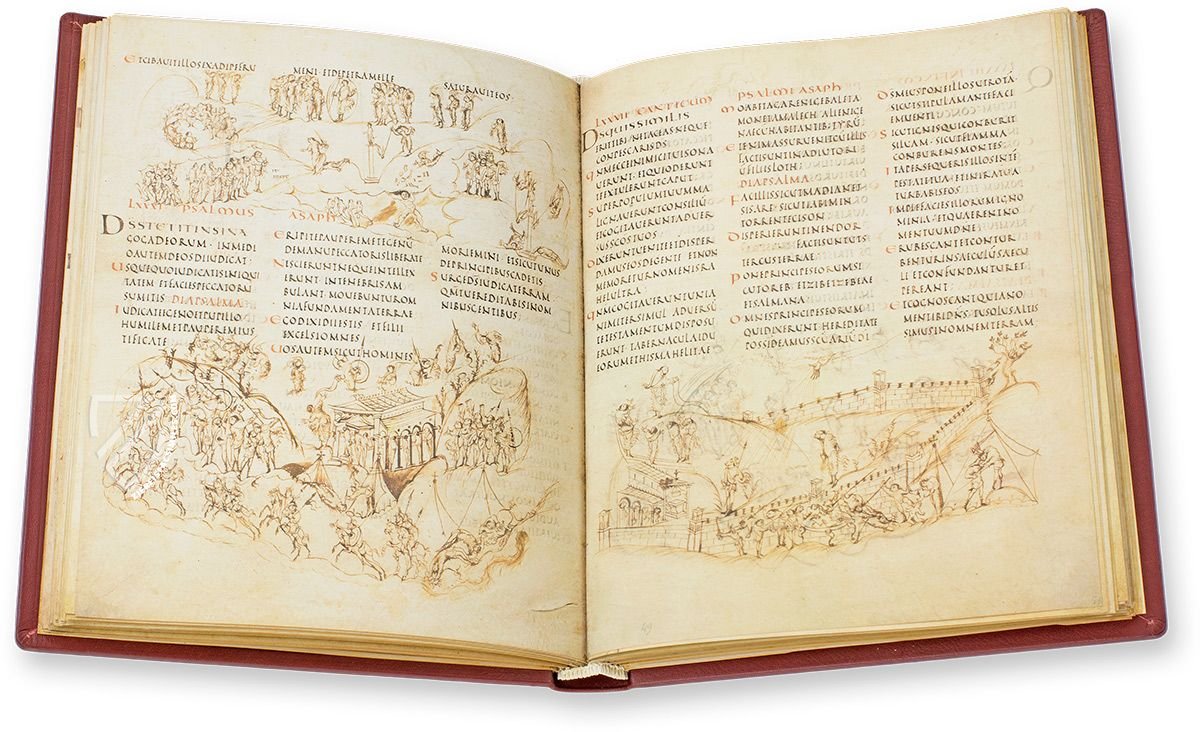 ETCIBAVITILLOSEXADIPEFRU MENTIETDEPETRAMELLE SATURAVITEOS·
LXXXI PSALMUS ASAPH
DSSTETITINSINA
GOGADEORUM · INMEDI
OAUTEMDEOSDIIUDICAT ·
USQUEQUOIUDICATISINIQUI
TATEM ETFACIESPECCATORU
SUMITIS DIAPSALMA
IUDICATEEGENOETPUPILLO
HUMILEMETPAUPEREMIUS
TIFICATE
ERIPITEPAUPEREMETEGENU
DEMANUPECCATORISLIBERATE
NESCIERUNTNEQUEINTELLEX
ERUNT INTENEBRISAM
BULANT · MOUEBUNTUROM
NIAFUNDAMENTATERRAE
EGODIXIDIIESTIS · ETFILII
EXCELSIOMNES
UOSAUTEMSICUTHOMINES
MORIEMINI ETSICUTUNUS
DEPRINCIPIBUSCADETIS
SURGEDSIUDICATERRAM
QMTUEREDITABISINOM
NIBUSGENTIBUS·
LXXXII CANTICUM PSALMI ASAPH
DSQUISSIMILIS
ERITTIBI · NETACEASNEQUE
CONPESCARISDS
QMECCEINIMICITUISONA
UERUNT · ETQUIODERUNT
TEEXTULERUNTCAPUT
SUPERPOPULUMTUUMMA
LIGNAUERUNTCONSILIU
ETCOGITAUERUNTADUER
SUSSCOSTUOS
DIXERUNTUENITEETDISPER
DAMUSEOSDEGENTE ETNON
MEMORETURNOMENISRA
HELULTRA
QMCOGITAUERUNTUNA
NIMITERSIMUL ADUERSU
TETESTAMENTUMDISPOSU
ERUNT · TABERNACULAIDU
EORUMETHISMAHELITAE
MOABETAGARENIGEBALETA
MONETAMALECH · ALIENIGE
NAECUHABITANTIB·TYRU
ETENIMASSURUENITCUILLIS
FACTISUNTINADIUTORI
UFILIISLOTH ·
DIAPSALMA
FACILLISSICUTMADIANET
SISARE · SICUTIABININ
TORRENTECISON
DISPERIERUNTINENDOR
FACTISUNTUTS
TERCUSTERRAE
PONEPRINCIPESEORUMSI
CUTOREB · ETZIBETZEBEAE
ETSALMANA
OMNESPRINCIPESEORUM
QUIDIXERUNT · HEREDITATE
POSSIDEAMUSSCUARIUDI
DSMEUSPONEILLOSUTROTA
SICUTSTIPULAMANTEFACI
EMUENTI
SICUTIGNISQUICONBURIT
SILUAM · SICUTFLAMMA
CONBURENSMONTES
ITAPERSEQUERISILLOSINTE
PESTATETUA · ETINIRATUA
TURBABISEOS
IMPLEFACIESILLORUMIGNO
MINIA · ETQUAERENTNO
MENTUUMDNE
ERUBESCANTETCONTUR
BENTURINSAECULUSAECU
LI · ETCONFUNDANTURET
PEREANT
ETCOGNOSCANTQUIANO
MENTIBIDNS · TUSOLUSALTIS
SIMUSINOMNEMTERRAM
49